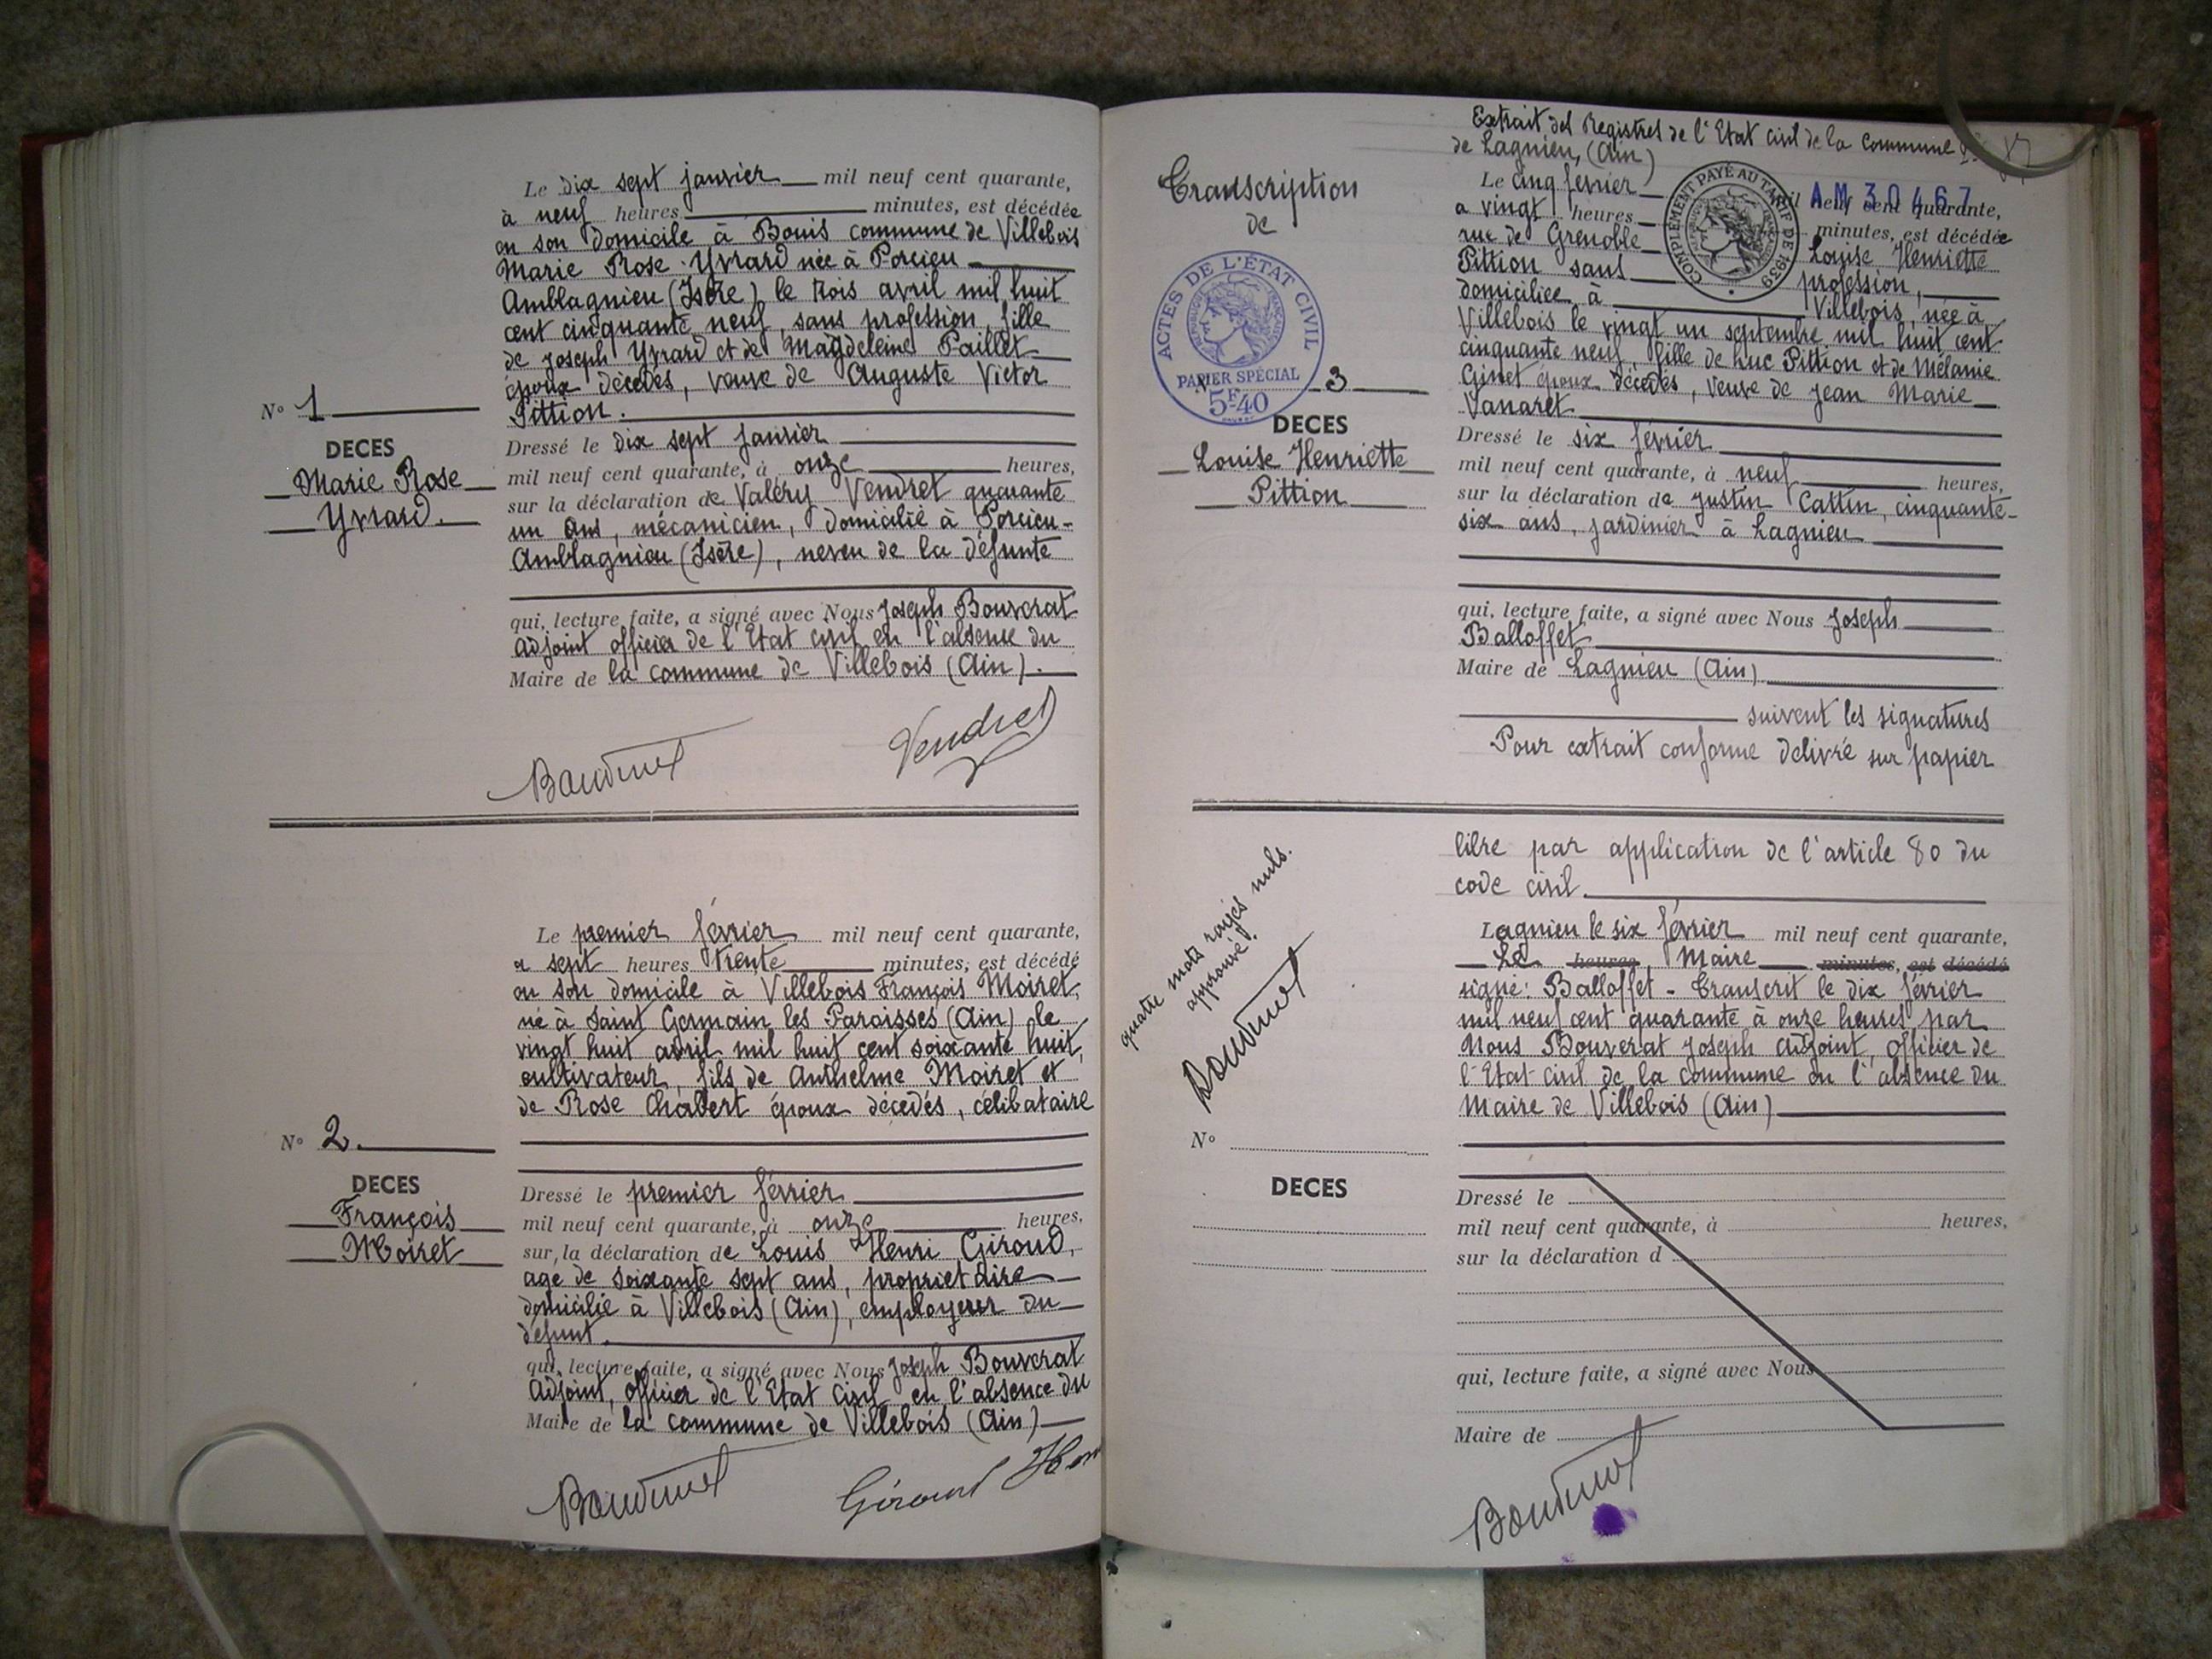 Le dix sept janvier mil neuf cent quarante,
à neuf heures minutes, est décédée
en son domicile à Bouis commune de Villebois
Marie Rose Yvrard née à Porcieu
Amblagnieu (Isère) le trois avril mil huit
cent cinquante neuf, sans profession, fille
de Joseph Yvrard et de Magdeleine Paillet
époux décédés, veuve de Auguste Victor
Pittion.
N° 1
DECES
Marie Rose
Yvrard.
Dressé le dix sept janvier
mil neuf cent quarante, à onze heures,
sur la déclaration de Valéry Vendret quarante
un ans, mécanicien, domicilié à Porcieu-
Amblagnieu (Isère), neveu de la défunte
qui, lecture faite, a signé avec Nous Joseph Bouverat
adjoint officier de l'Etat civil en l'absence du
Maire de la commune de Villebois (Ain).
Vendret
Le premier février mil neuf cent quarante,
a sept heures trente minutes, est décédé
en son domicile à Villebois François Moiret,
né à Saint Germain les Paroisses (Ain) le
vingt huit avril mil huit cent soixante huit,
cultivateur, fils de Anthelme Moiret et
de Rose Chabert époux décédés, célibataire
N° 2.
DECES
François
Moiret
Dressé le premier février
mil neuf cent quarante, à onze heures,
sur la déclaration de Louis Henri Giroud,
agé de soixante sept ans, propriétaire
domicilié à Villebois (Ain), employeur du
défunt.
qui, lecture faite, a signé avec Nous Joseph Bouverat
Adjoint, Officier de l'Etat Civil en l'absence du
Maire de la commune de Villebois (Ain)
Extrait des Registres de l'Etat Civil de la Commune
de Lagnieu, (Ain)
AM 30467
COMPLÉMENT PAYÉ AU TARIF DE 1939
Transcription
de
ACTES DE L'ÉTAT CIVIL
PAPIER SPÉCIAL
5F40
3
DECES
Louise Henriette
Pittion
Le cinq février mil neuf cent quarante,
a vingt heures minutes, est décédée
rue de Grenoble Louise Henriette
Pittion sans profession,
domiciliée à Villebois, née à
Villebois le vingt un septembre mil huit cent
cinquante neuf, fille de Luc Pittion et de Mélanie
Ginet époux décédés, veuve de Jean Marie
Vanaret
Dressé le six février
mil neuf cent quarante, à neuf heures,
sur la déclaration de Justin Cattin, cinquante-
six ans, jardinier à Lagnieu
qui, lecture faite, a signé avec Nous Joseph
Balloffet
Maire de Lagnieu (Ain)
suivent les signatures
Pour extrait conforme délivré sur papier
libre par application de l'article 80 du
code civil.
quatre mots rayés nuls.
approuvé.
Lagnieu le six février mil neuf cent quarante,
Le heures Maire minutes, est décédé
signé: Balloffet - Transcrit le dix février
mil neuf cent quarante à onze heures par
Nous Bouverat Joseph Adjoint, Officier de
l'Etat Civil de la commune en l'absence du
Maire de Villebois (Ain)
N°
DECES
Dressé le
mil neuf cent quarante, à heures,
sur la déclaration d
qui, lecture faite, a signé avec Nous
Maire de